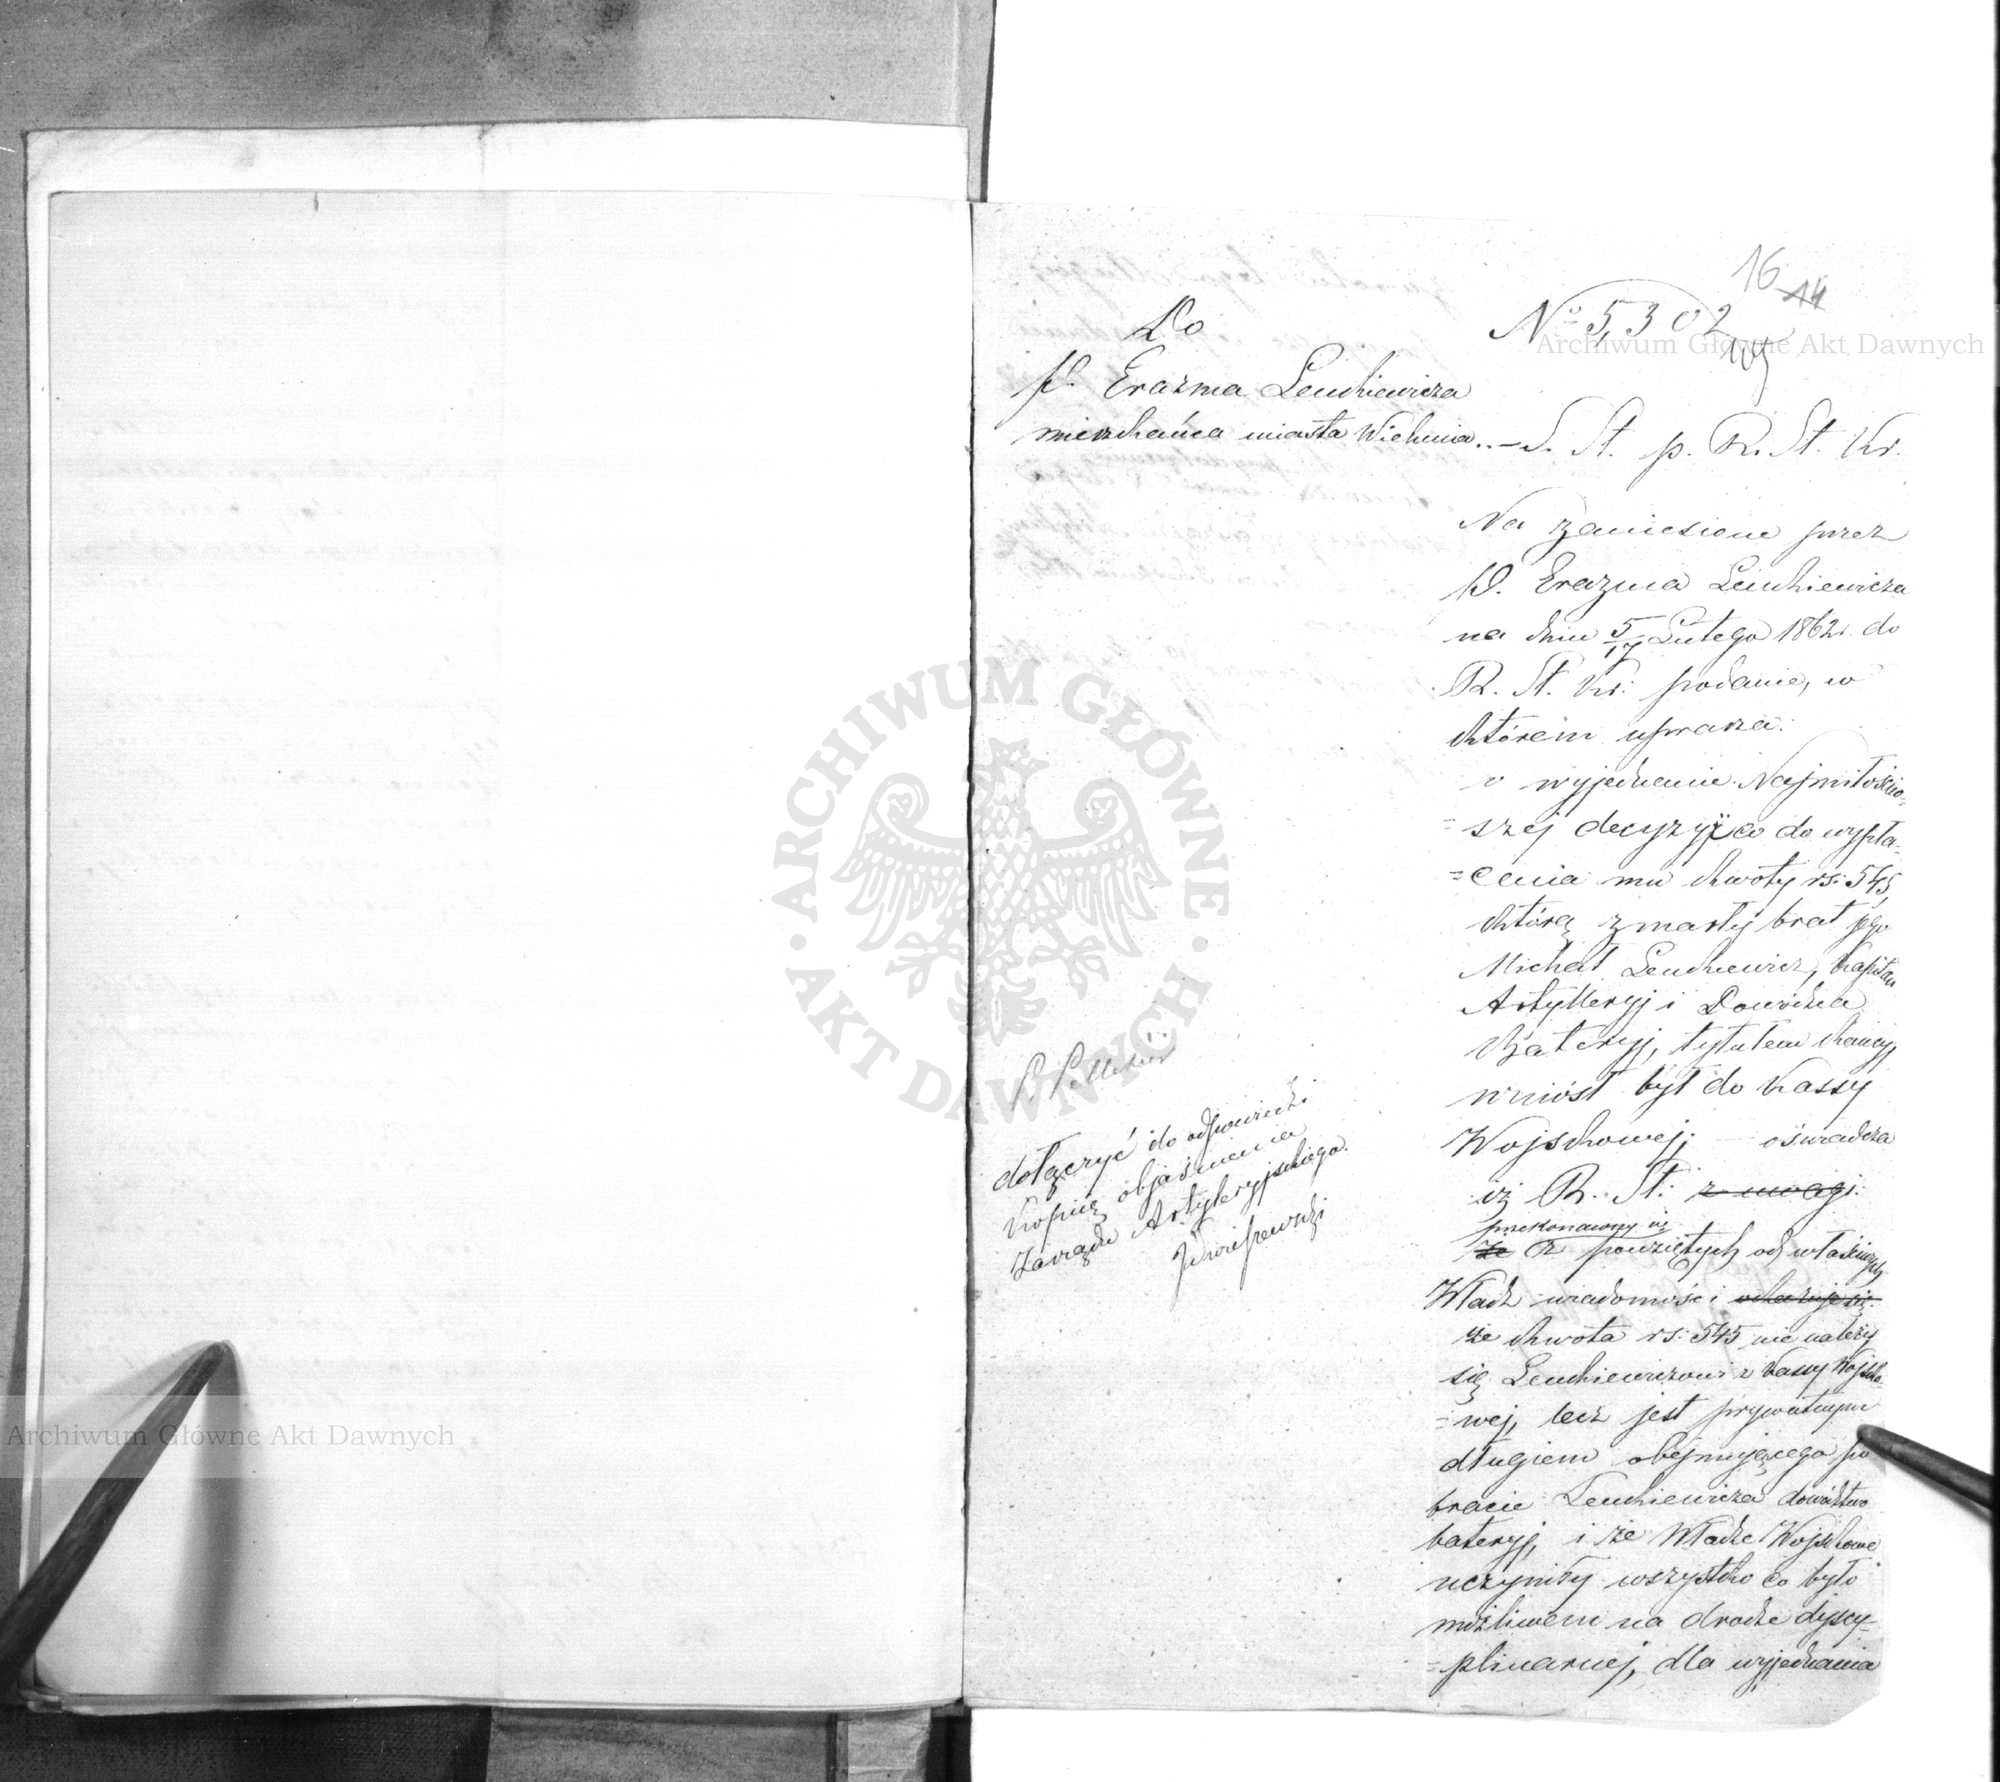 16 14
№ 5,302
Do
P. Erazma Lenkiewicza
mieszkańca miasta Wielunia. —
S. St. p. R. St. Kr.
Na zaniesione przez
P. Erazma Lenkiewicza
na dniu 5/17 Lutego 1862 r. do
R. St. Kr. podanie, w
którem uprasza:
o wyjednanie Najmiłościw=
=szej decyzyi co do wypła=
=cenia mu kwoty rs: 545
którą zmarły brat jego
Michał Lenkiewicz, Kapitan
Artylleryj i Dowódzca
Bateryj, tytułem kaucyj
wniósł był do kassy
Wojskowej; — oświadcza
iż R. St: z uwagi:
przekonawszy się
że z powziętych od właściwych
Władz wiadomości okazuje się
że kwota rs: 545 nie należy
się Lenkiewiczowi z kassy Wojsko=
=wej, lecz jest prywatnym
długiem obejmującego po
bracie Lenkiewicza dowództwo
bateryj, i że Władze Wojskowe
uczyniły wszystko co było
możliwem na drodze dyscy=
=plinarnej, dla wyjednania
dołączyć do odpowiedzi
kopię objaśnienia
Zarządu Artyleryjskiego.
ARCHIWUM GŁÓWNE · AKT DAWNYCH ·
Archiwum Główne Akt Dawnych
Archiwum Główne Akt Dawnych